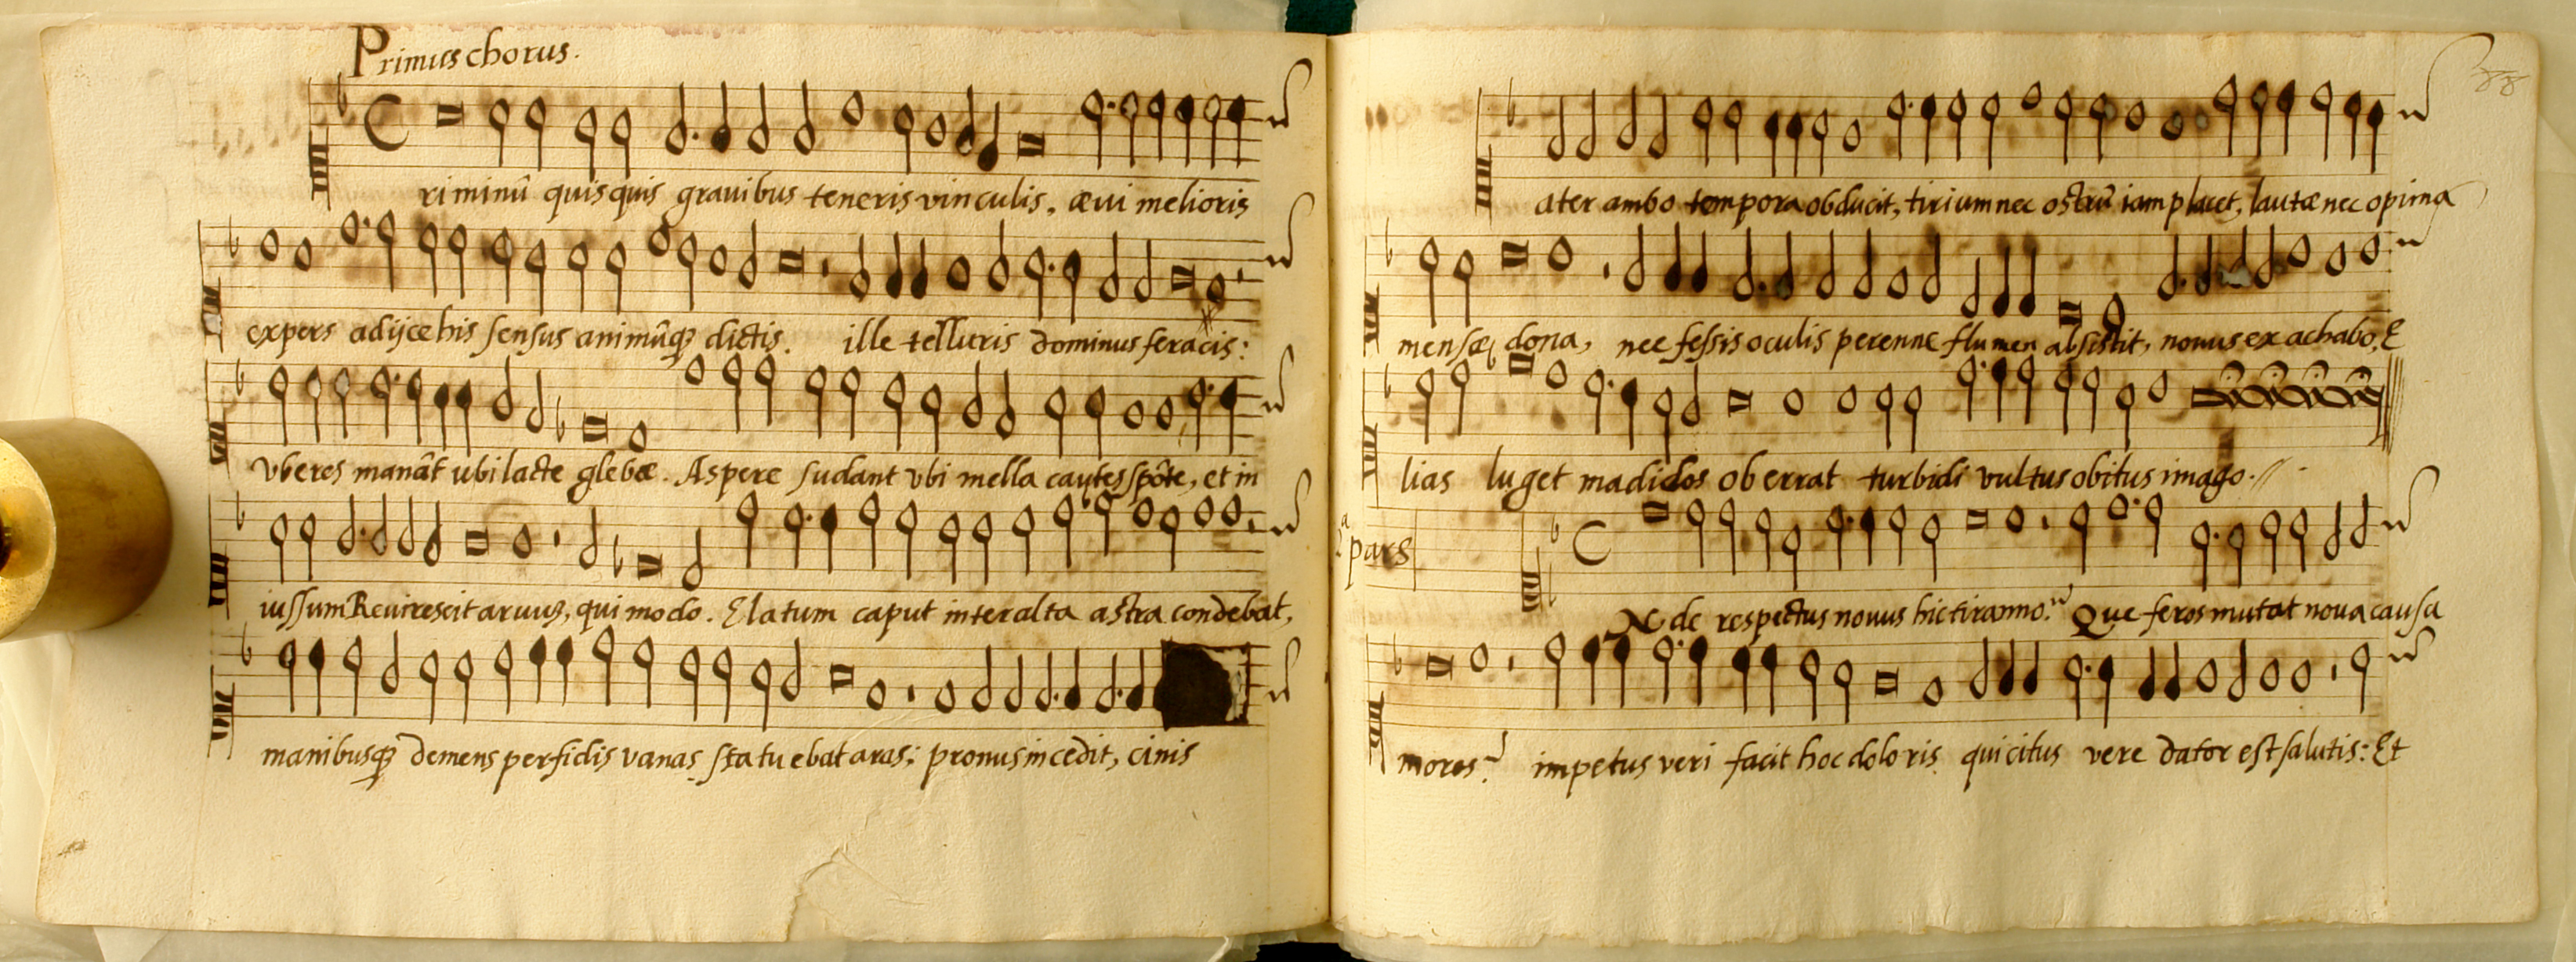 Primus chorus.
riminũ quisquis grauibus teneris vinculis, æui melioris
expers adijce his sensus animũq; dictis. ille telluris dominus feracis:
vberes manãt ubi lacte glebæ. Aspere sudant vbi mella cautes spõte, et in
iussum Reuirescit aruuʒ, qui modo. Elatum caput inter alta astra condebat,
manibusq; demens perfidis vanas statuebat aras; pronus incedit, cinis
ater ambo tempora obducit, tirium nec ostrũ iam placet, lautæ nec opima
mensæ dona, nec fessis oculis perenne flumen absistit, nouus ex achabo, E
lias luget madidos oberrat turbidi vultus obitus imago.
2ª pars
Nde respectus nouus hic tiranno? Que feros mutat noua causa
mores? impetus veri facit hoc doloris qui citus vere dator est salutis: Et